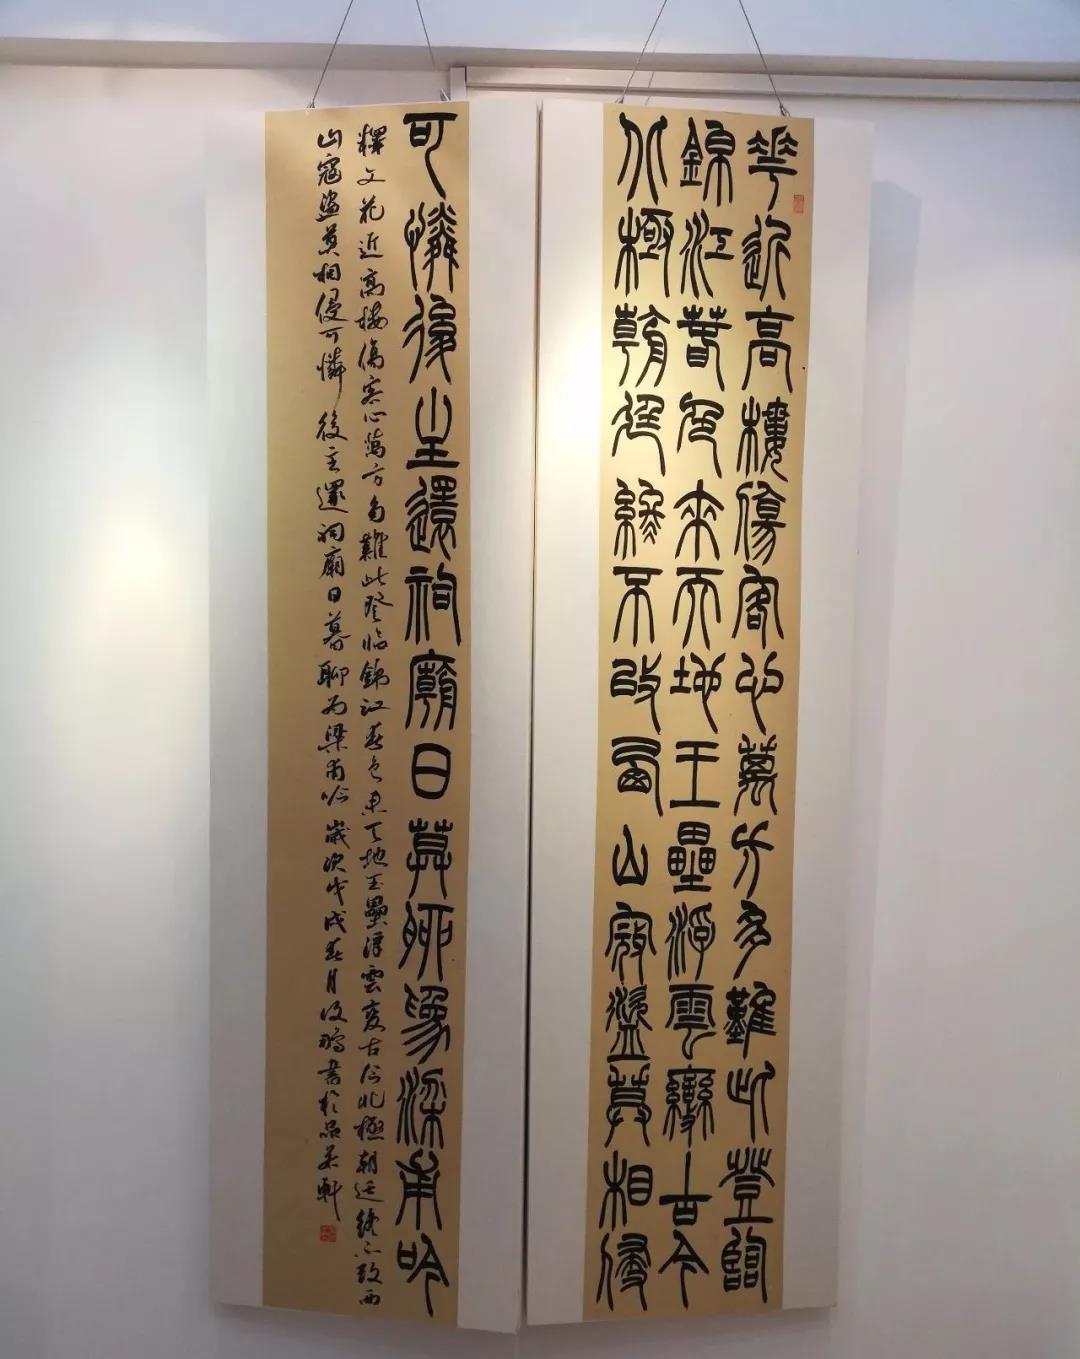 華近高樓傷客心萬方多難此登臨
錦江春色來天地玉壘浮雲變古今
北極朝廷終不改西山寇盜莫相侵
可憐後主還祠廟日莫聊為梁甫吟
釋文花近高樓傷客心萬方多難此登臨錦江春色來天地玉壘浮雲變古今北極朝廷終不改西
山寇盜莫相侵可憐後主還祠廟日暮聊為梁甫吟歲次戊戌春月鵬書於品軒